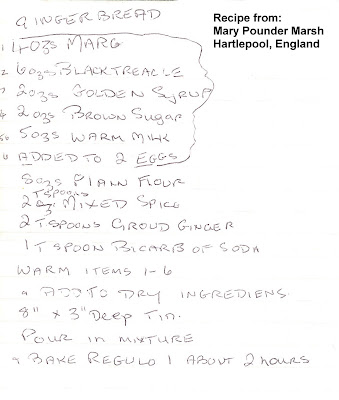 GINGERBREAD
Recipe from:
Mary Pounder Marsh
Hartlepool, England
1 4ozs MARG
2 6ozs BLACK TREACLE
3 2ozs GOLDEN SYRUP
4 2ozs BROWN SUGAR
5 5ozs WARM MILK
6 ADDED TO 2 EGGS
8ozs PLANN FLOUR
2 TSPOONS MIXED SPICE
2 TSPOONS GROUD GINGER
1 TSPOON BICARB OF SODA
WARM ITEMS 1-6
ADD TO DRY INGREDIENS
8" x 3" DEEP TIN.
POUR IN MIXTURE
BAKE REGULO 1 ABOUT 2 HOURS